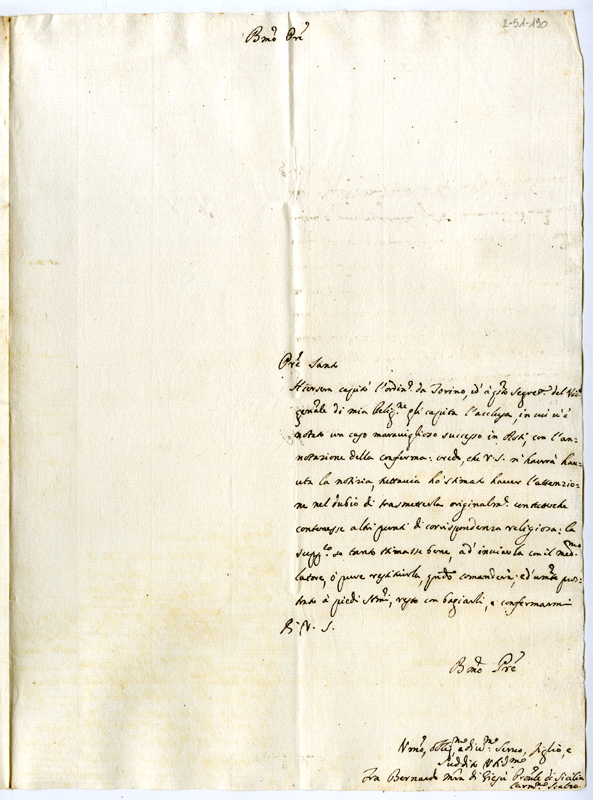 2-51-190
Bmõ Prẽ
Prẽ Santo
Hiersera capitò l'ordin.º da Torino, ed' à qsto Segret.º del Vic.
genrale di mia Relig.ne gli capita l'acclusa, in cui v'è
notato un caso maraviglioso successo in Asti, con l'an-
notazione della conferma: credo, che V. S. n'haverà hau-
uta la notizia, tuttavia hò stimato haver l'attenzio-
ne nel dubio di trasmetterla originalm.e contuttoche
contenesse altri punti di corrispondenza religiosa: la
supp.co se tanto stimasse bene, ad' inviarla con il med.mo
latore, ò pure restituirla, qndo comanderà; ed' umte pros-
trato à piedi Stmi, resto con bagiarli, e confermarmi
Di V. S.
Bmõ Prẽ
Vmo, Obl.mo, e di.mo Servo, figlio, e
Suddito
Fra Bernardo Mria di Giesù Pronle di Sicilia
Carm.no Scalzo.